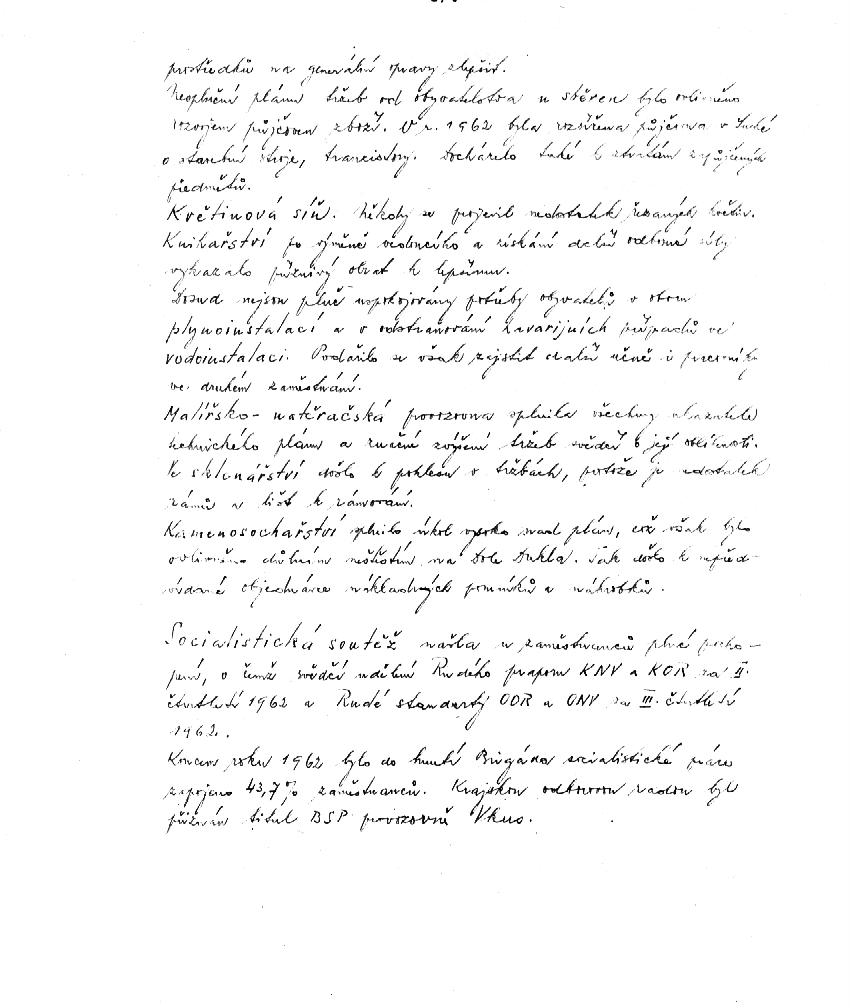 prostředků na generální opravy zlepšit.
Neplnění plánu tržeb od obyvatelstva u sběren bylo ovlivněno
rozvojem půjčoven zboží. V r. 1962 byla rozšířena půjčovna v Suché
o stavební stroje, tranzistory. Docházelo také k ztrátám zapůjčených
předmětů.
Květinová síň. Někdy se projevil nedostatek řezaných květin.
Knihařství po výměně vedoucího a získání další odborné síly
vykazalo příznivý obrat k lepšímu.
Dosud nejsou plně uspokojovány potřeby obyvatelů v oboru
plynoinstalací a v odstraňování havarijních případů ve
vodoinstalaci. Podařilo se však zajistit další učně i pracovníky
ve druhém zaměstnání.
Malířsko-natěračská provozovna splnila všechny ukazatele
technického plánu a značné zvýšení tržeb svědčí o její oblíbenosti.
Ve sklenářství došlo k poklesu v tržbách, protože je nedostatek
rámů a lišt k rámování.
Kamenosochařství splnilo úkol vysoko nad plán, což však bylo
ovlivněno důlním neštěstím na Dole Dukla. Tak došlo k nepřed-
vídané objednávce nákladných pomníků a náhrobků.
Socialistická soutěž našla u zaměstnanců plné pocho-
pení, o čemž svědčí udělení Rudého praporu KNV a KOR za II.
čtvrtletí 1962 a Rudé standarty OOR a ONV za III. čtvrtletí
1962.
Koncem roku 1962 bylo do hnutí Brigáda socialistické práce
zapojeno 43,7% zaměstnanců. Krajskou odborovou radou byl
přiznán titul BSP provozovně Vkus.